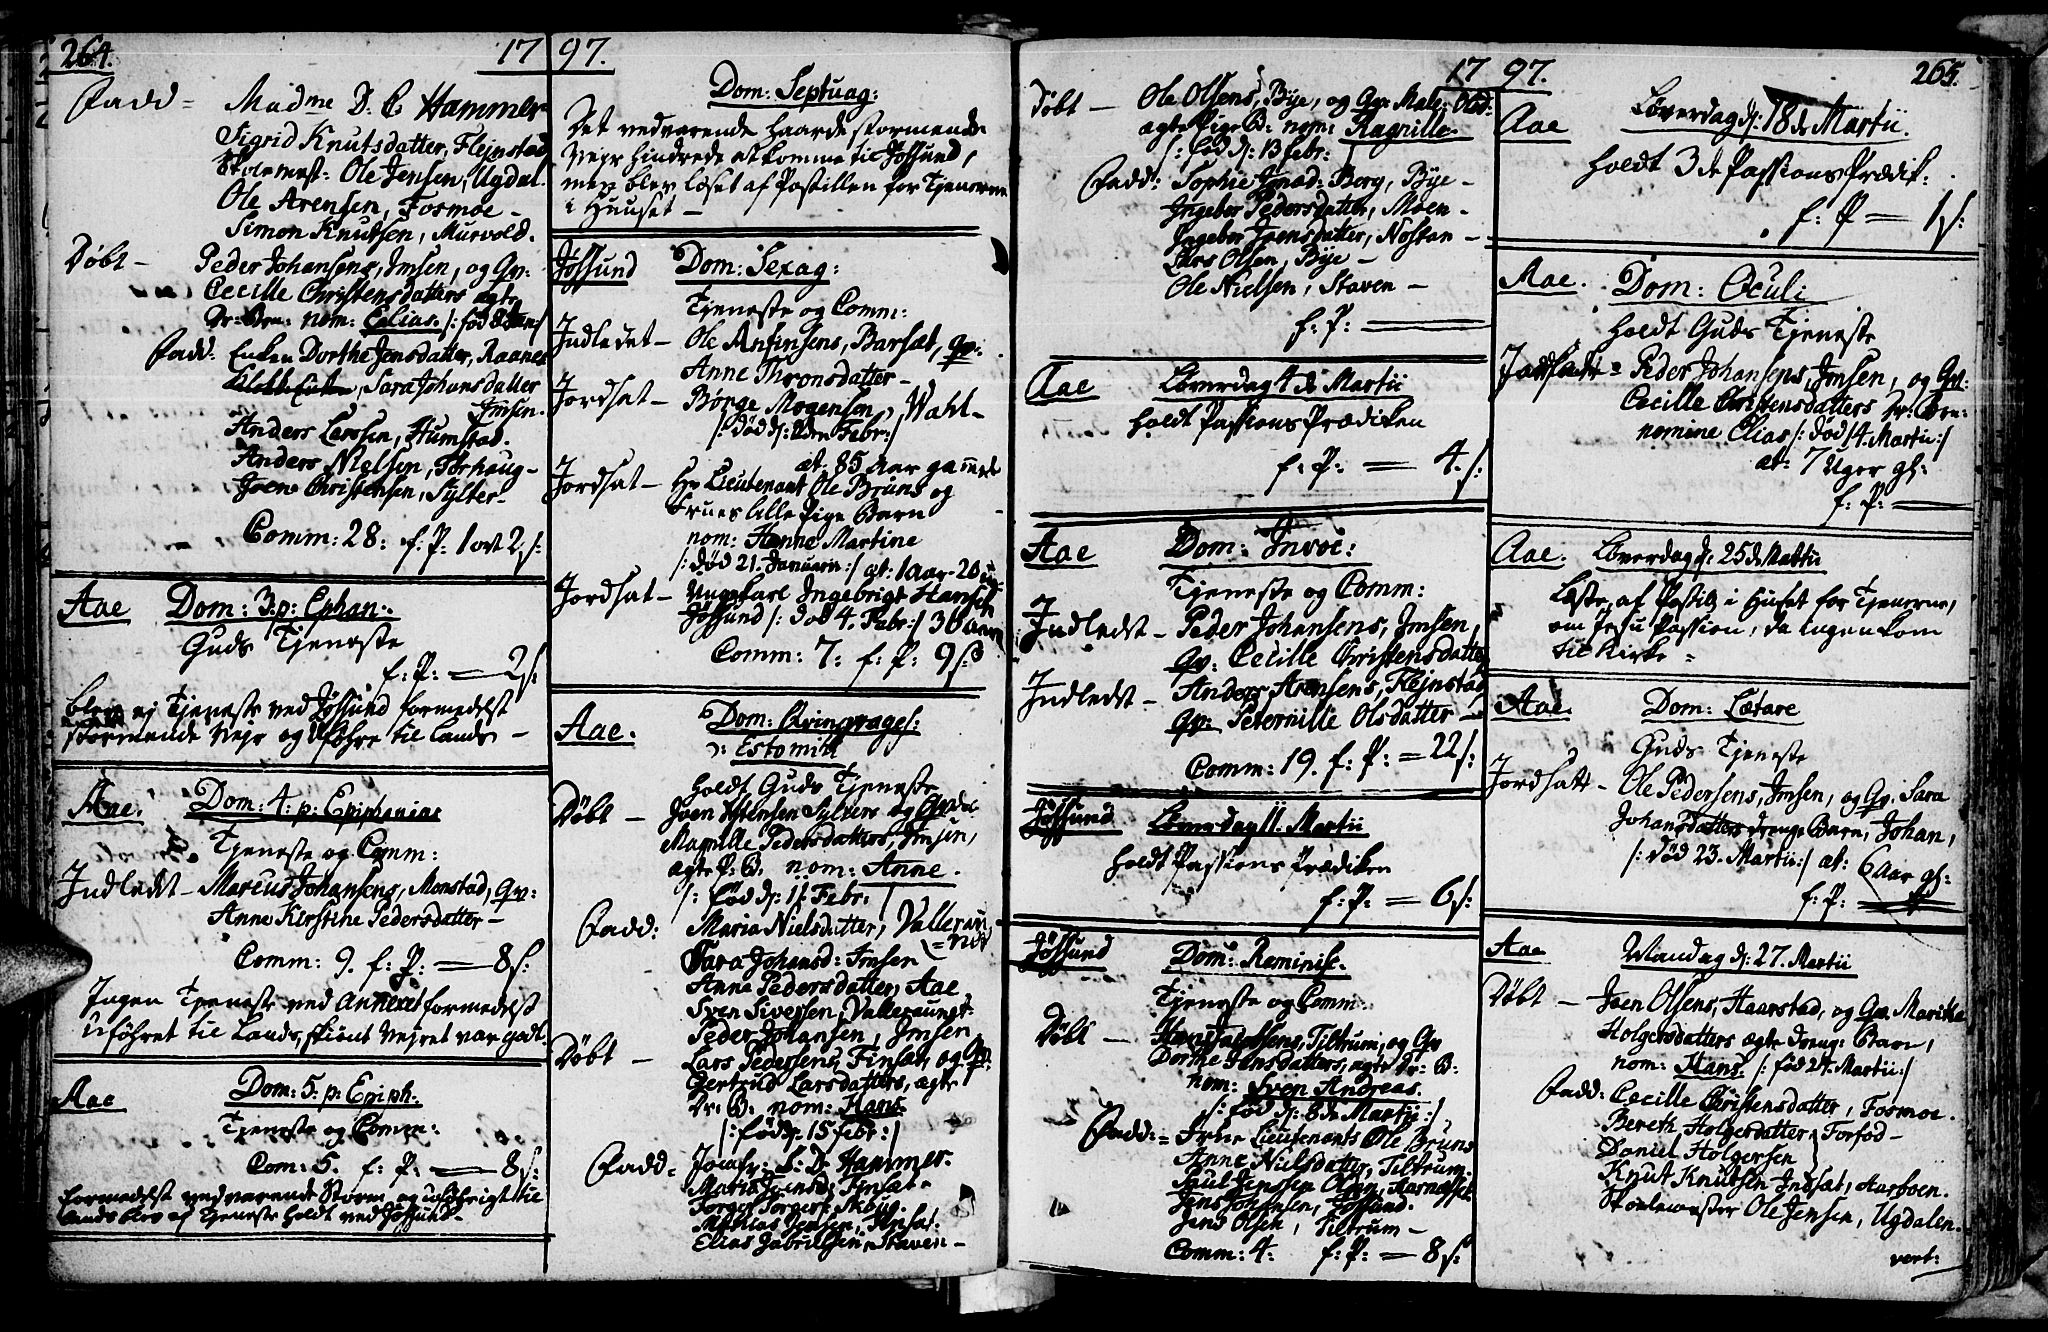 264.
17 97.
Fadd = Madme D. C. Hammer
Sigrid Knutsdatter, Flejnstad
Skolemest: Ole Jensen, Ugdal.
Ole Arensen, Fosmoe -
Simon Knutsen, Murvold.
Døbt - Peder Johansens, Jmsen, og Qv:
Cecille Christensdatters ægte
Dr: Brn: nom: Elias.
Fadd: Enken Dorthe Jensdatter, Raanes
Sara Johansdatter
Jmsen.
Anders Larssen, Humstad.
Anders Nielsen, Tørhaug -
Joen Christensen, Sylter -
Comm: 28: f: P: 1 ort 2 s:
Aae Dom: 3. p: Ephan:
Guds Tjeneste
f: P: = 2 s:
blev ej Tjeneste ved Jøssund formedelst
stormende Vejr og Uføhre til Lands -
Aae. Dom: 4: p: Epiphanias
Tjeneste og Comm:
Indledt - Marcus Johansens, Monstad, Qv:
Anne Kirstine Pedersdatter -
Comm: 9. f: P: = 8 s:
Ingen Tjeneste ved Annexet formedelst
Uføhret til Lands, skiønt Vejret var godt.
Aae Dom: 5. p: Epiph:
Tjeneste og Comm:
Com: 5. f: P: = 8 s:
formedelst vedvarende Storm og uføhrigt til
Lands blev ej Tjeneste holdt ved Jøssund -
Dom: Septuag:
Det vedvarende haarde stormende
Vejr hindrede at komme til Jøssund,
men blev læset af Postillen for Tjenerne
i Huuset -
Jøssund Dom: Sexag:
Tjeneste og Comm:
Indledet - Ole Anfinsens, Barsæt, Qv:
Anne Thronsdatter -
Jordsat - Børge Mogensen, Wahl -
Febr:
æt: 85 Aar gammel
Jordsat - Hr Lieutenant Ole Bruns og
Frues lille Pige Barn
nom: Hanne Martine
/: død 21. Januarii :/ æt: 1 Aar
Jordsat - Ungekarl Ingebrigt Hansen
Jøssund /: død 4. Febr: / 36 Aar
Comm: 7: f: P: 9 s:
Aae. Dom: Qvinqvages:
ɔ: Estomihi
holdt Guds Tjeneste
Døbt - Joen Sylters og
Magnille Pedersdatters, Jmsen,
ægte P: B. nom: Anne.
/: fød d: 11 Febr: /
Fadd: Maria Nielsdatter, Valleraun
Sara Johansd: Jmsen
Anne Pedersdatter, Aae
Sven Siversen, Valleraunet.
Peder Johansen, Jmsen
Døbt - Lars Pedersens, Finsæt, og Qv:
Gertrud Larsdatters, ægte
Dr: B: nom: Hans.
/: fød d: 15 Febr: /
Fadd = Jomfr: Hammer.
Maria Finsæt -
Torger Torgers:
Mathias Jensen, Finsæt.
Elias Gabrielsen, Staven -
17 97.
265.
Døbt - Ole Olsens, Bye, og Qv: Male: Olsd:
ægte Pige B: nom: Ragnille.
/: fød d: 13 Febr: /
Fadd: Sophie Berg, Bye -
Ingebor Pedersdatter, Moen -
Ingebor Joensdatter, Nostan -
Lars Olsen, Bye -
Ole Nielsen, Staven -
f: P:
Aae Løverdag 4 de Martii
holdt Passions Prædiken
f: P: = 4. s:
Aae Dom: Invoc:
Tjeneste og Comm:
Indledt - Peder Johansens, Jmsen,
Qv: Cecille Christensdatter
Indledt - Anders Arensens, Flejnstad
Qv: Peternille Olsdatter -
Comm: 19. f: P: = 22 s:
Jøssund Løverdag 11. Martii
holdt Passions Prædiken
f: P: = 6 s:
Jøssund Dom: Reminisc.
Tjeneste og Comm:
Døbt - Hans Jacobsens, Tiltrum, og Qv
Dorthe Jensdatters, ægte Dr: B:
nom: Sven Andreas.
/: fød d: 8 de Martii :/
Fadd: = Frue Lieutenants Ole Bruns
Anne Nielsdatter, Tiltrum.
Poul Jenssen Olden,
Jens Johansen, Jøssund.
Jens Olsen, Tiltrum -
Comm: 4. f: P: = 8 s:
Aae Løverdag d: 18 de Martii.
holdt 3 de Passions Prædik:
f: P = 1 s:
Aae. Dom: Oculi
holdt Guds Tjeneste
Jordsatt = Peder Johansens Jmsen, og Qv:
Cecille Christensdatters Dr: Brn:
nomine Elias /: død 14. Martii :/
æt: 7 Uger gl:
f: P:
Aae. Løverdag d: 25 de Martii
Læste af Postil i Huset for Tjenerne,
om Jesu Passion, da ingen kom
til Kirke =
Aae. Dom: Lætare
Guds Tjeneste
Jordsatt - Ole Pedersens, Jmsen, og Qv. Sara
Johansdatters Drenge Barn, Johan,
/: død 23. Martii :/ æt: 6 Aar gl:
f: P:
Aae Mandag d: 27. Martii
Døbt - Joen Olsens, Haarstad, og Qv. Marithe
Holgersdatters ægte Dreng: Barn,
nom: Hans. /: fød 24. Martii :/
Fadd: Cecille Christensdatter, Fosmoe.
Bereth Holgersdatter, Forfod -
Daniel Holgersen
Knut Knutsen Indsæt, Aarboen.
Skolemester Ole Jensen, Ugdalen.
vert: